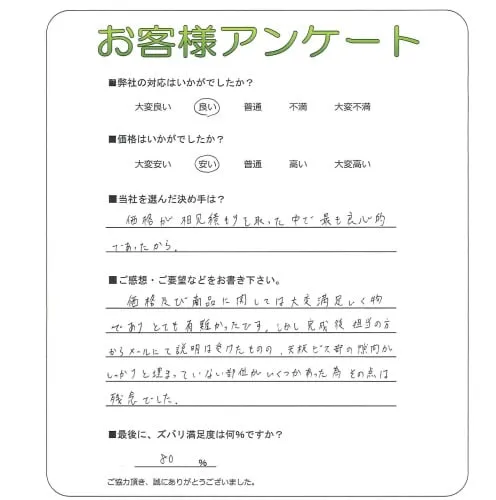 お客様アンケート
■弊社の対応はいかがでしたか？
大変良い 良い 普通 不満 大変不満
■価格はいかがでしたか？
大変安い 安い 普通 高い 大変高い
■当社を選んだ決め手は？
価格が相見積もりを取った中で最も良心的
であったから。
■ご感想・ご要望などをお書き下さい。
価格及び商品に関しては大変満足いく物
でありとても有難かったです。しかし完成後担当の方
からメールにて説明は受けたものの、天板ビス部の隙間が
しっかりと埋まっていない部位がいくつかあった為その点は
残念でした。
■最後に、ズバリ満足度は何％ですか？
80 ％
ご協力頂き、誠にありがとうございました。